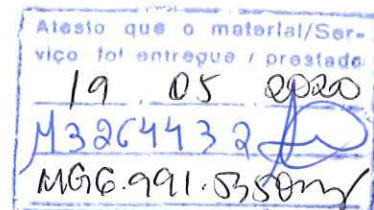 Atesto que o material/Ser-
viço foi entregue / prestado
19 . 05 . 2020
M3264432
MG6.991.535